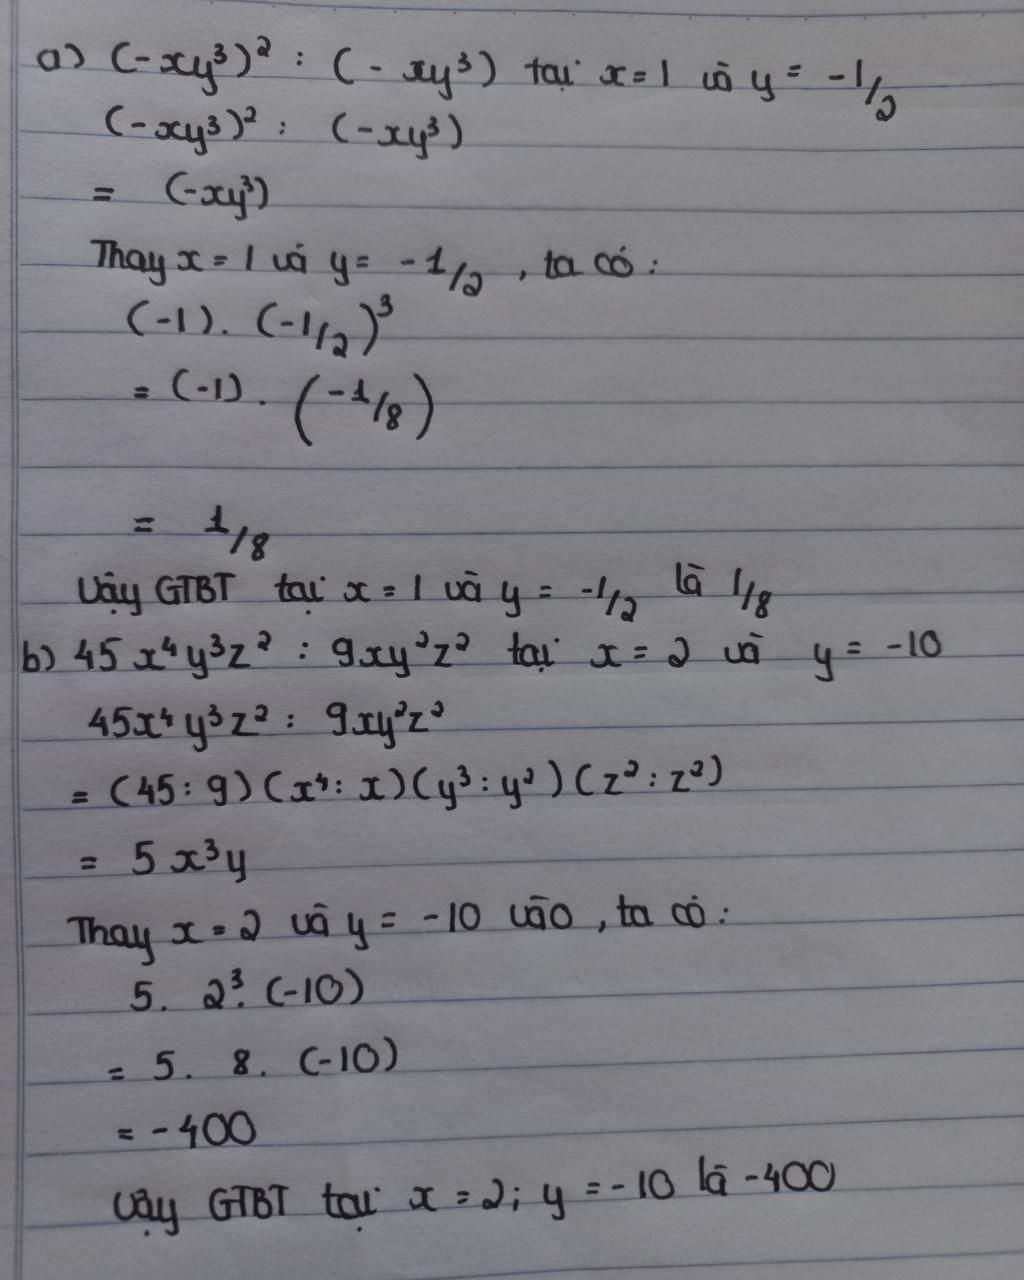 a) (-xy³)² : (- xy³) tại x=1 và y = -1/2
(-xy³)² : (-xy³)
= (-xy³)
Thay x = 1 và y = -1/2 , ta có :
(-1). (-1/2)³
= (-1). (-1/8)
= 1/8
Vậy GTBT tại x = 1 và y = -1/2 là 1/8
b) 45 x⁴y³z² : 9xy²z² tại x = 2 và y = -10
45x⁴y³z² : 9xy²z²
= (45 : 9)(x⁴: x)(y³ : y²)(z² : z²)
= 5 x³y
Thay x = 2 và y = -10 vào , ta có :
5. 2³. (-10)
= 5. 8. (-10)
= -400
Vậy GTBT tại x = 2; y = -10 là -400